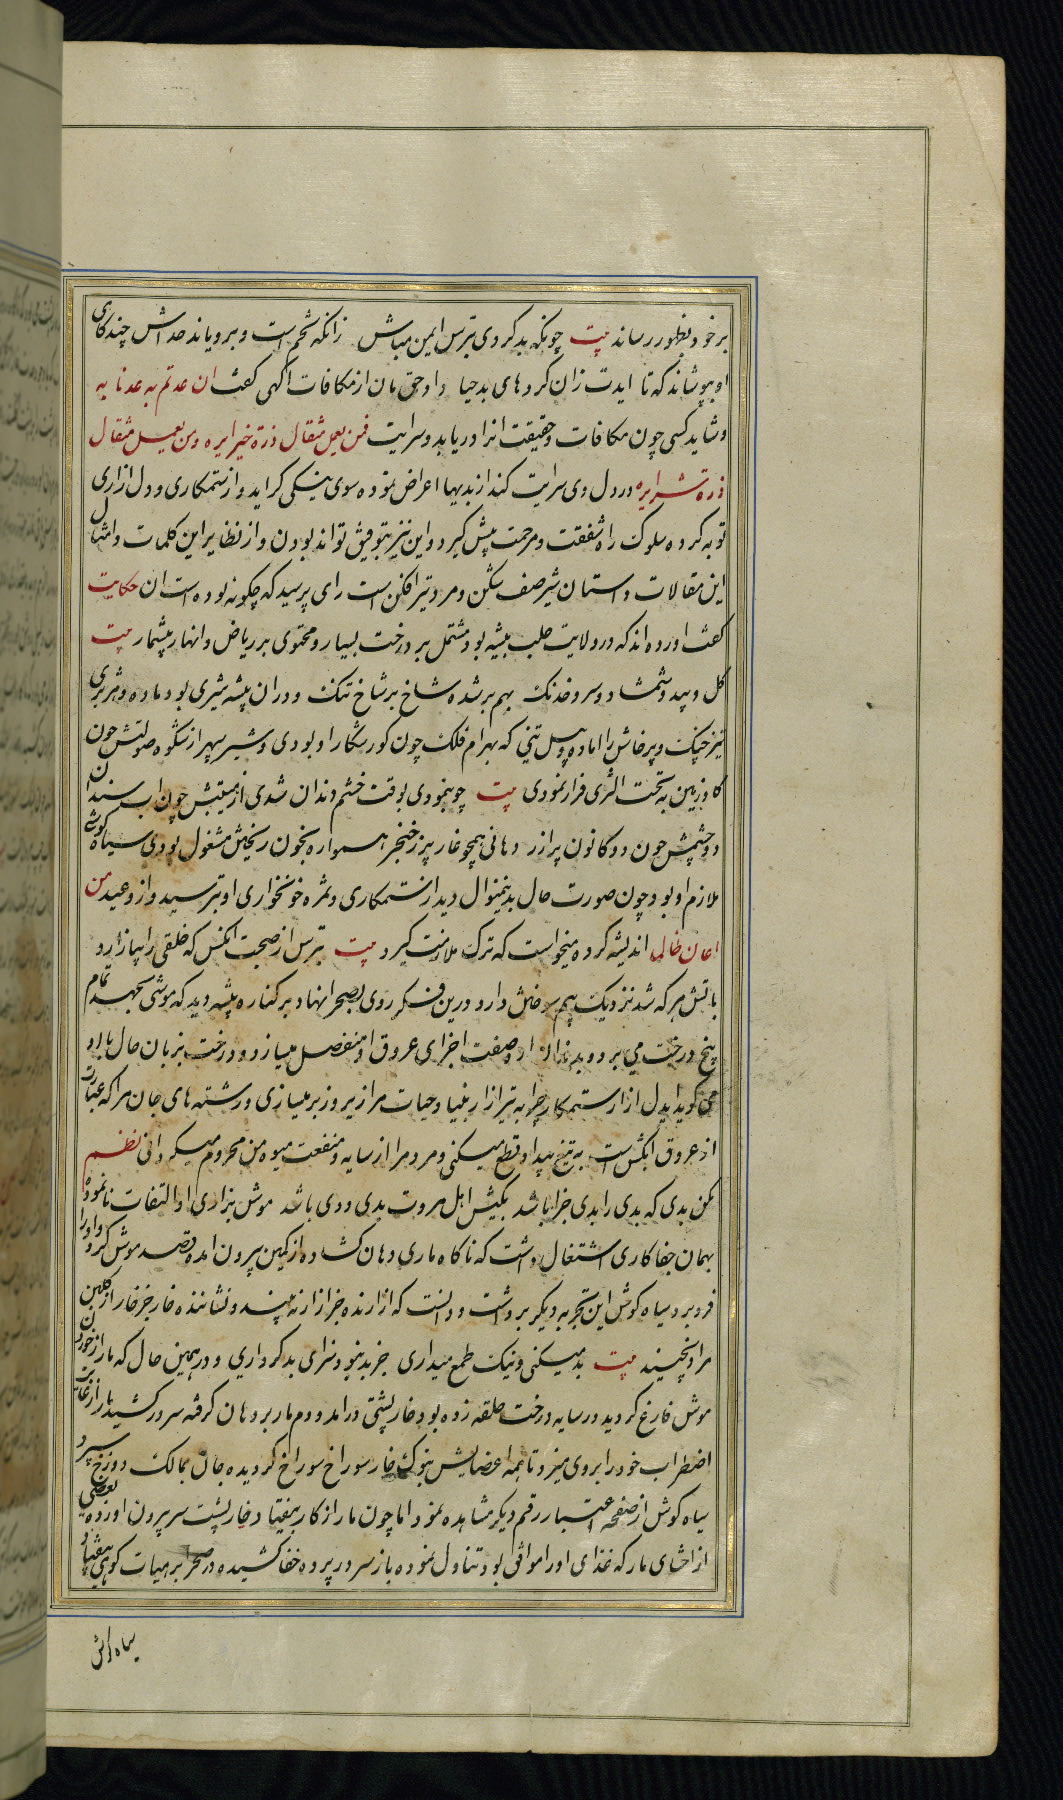 بر خود بظهور رساند بیت چونکه بد کردی بترس ایمن مباش زانکه تخم است و برویاند خداش چند گاهی
او بپوشاند که تا ایدت زان کردهای بد حیا داد حق مان از مکافات اگهی گفت ان عدتم به عدنا به
و شاید کسی چون مکافات و حقیقت انرا دریابد و سرایت فمن یعمل مثقال ذرة خیرا یره و من یعمل مثقال
ذرة شرا یره در دل وی سرایت کند از بدیها اعراض نموده سوی نیکی گراید و از ستمکاری و دل ازاری
توبه کرده سلوک راه شفقت و مرحمت پیش گیرد و این نیز بتوفیق تواند بودن و از نظایر این کلمات و امثال
این مقالات داستان شیر صف شکن و مرد تیر افکن است رای پرسید که چگونه بوده است ان حکایت
گفت اورده اند که در ولایت حلب بیشه بود مشتمل بر درخت بسیار و محتوی بر ریاض و انهار بیشمار بیت
گل و بید و شمشاد و سرو خدنک بهم بر شده شاخ بر شاخ تنک و دران بیشه شیری بود ماده و هزبری
تیز چنک و پرخاش را اماده و پیل تنی که بهرام فلک چون گور شکار او بودی و شیر سپهر از شکوه صولتش چون
گاو زمین به تحت الثری فرار نمودی بیت چو بنمودی بوقت خشم دندان شدی از هیبتش چون اب سندان
دو چشمش چون دو کانون پر ازر دهانی همچو غار پر ز خنجر همواره بخون ریختن مشغول بودی سیاه گوشی
ملازم او بود چون صورت حال بدینمنوال دید از ستمکاری و ثمره خونخواری او بترسید و از وعید من
اعان ظالما اندیشه کرده میخواست که ترک ملازمت گیرد بیت بترس از صحبت انکس که خلقی را بیازارد
باتش هر که شد نزدیک بیم سوختن دارد درین فکر روی بصحرا نهاد بر کناره بیشه دید که موشی بجهد تمام
بیخ درخت می برد و بدندان اره صفت اجزای عروق او منفصل میسازد و درخت بزبان حال با او
می گوید ای دل ازار ستمکار چرا به تیر ازار بنیاد حیات مرا زیر و زبر میسازی و رشته های جان مرا که عبارت
از عروق ابکش است به تیغ بیداد قطع میکنی و مردمرا از سایه و منفعت میوه من محروم میگردانی نظم
مکن بدی که بدی را بدی جزا باشد بکیش اهل مروت بدی ددی باشد موش بزاری او التفات نانموده
بهمان جفاکاری اشتغال داشت که ناگاه ماری دهان گشاده از کمین بیرون امده قصد موش کرد و او را
فرو برد سیاه گوش این تجربه دیگر برداشت و دانست که ازارنده جز ازار نه بیند و نشاننده خار جز خار از گلبن
مراد نچیند بیت بد میکنی و نیک طمع میداری جز بد نبود سزای بد کرداری و در همین حال که مار از خوردن
موش فارغ گردید در سایه درخت حلقه زده بود خارپشتی درامد و دم مار بر دهان گرفته سر در کشید مار از غایت
اضطراب خود را بر وی میزد تا همه اعضایش بنوک خار سوراخ سوراخ گردیده جان بمالک دوزخ سپرد
سیاه گوش از صفحه اعتبار رقم دیگر مشاهده نمود اما چون مار از کار بیفتاد خارپشت سر بیرون اورده بعضی
از احشای مار که غذای او را موافق بود تناول نموده باز سر در پرده خفا کشیده در صحرا بر هیات گوی بیفتاد
سیاه گوش